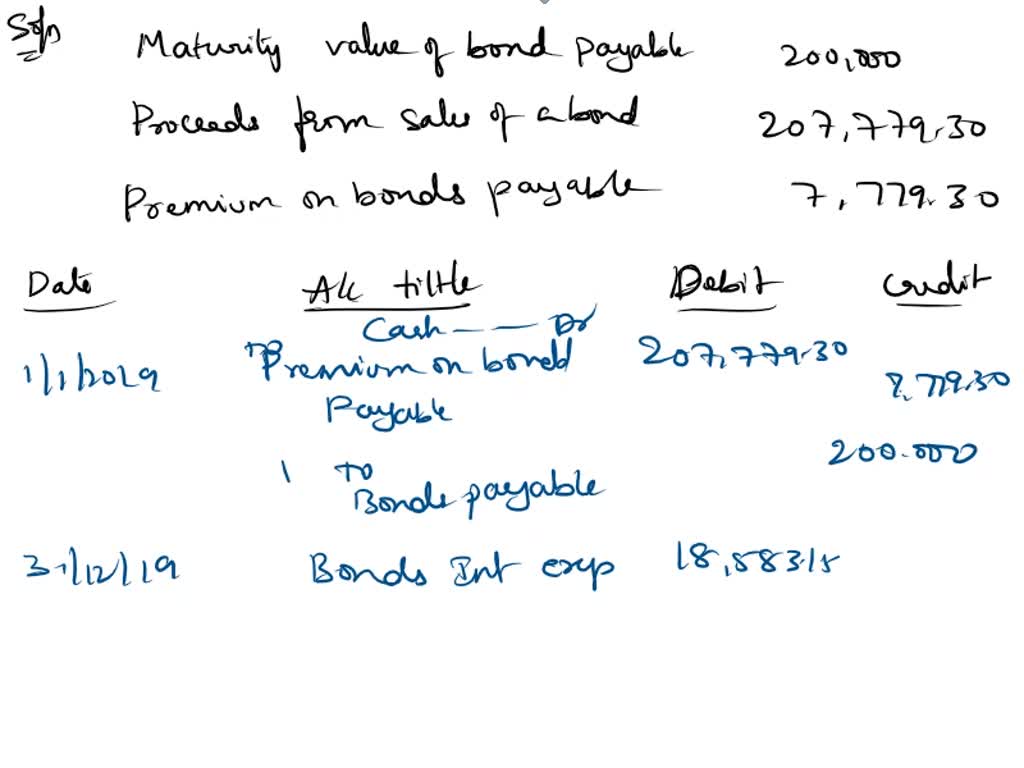 Soln
Maturity value of bond payable 200,000
Proceeds from sales of a bond 207,779.30
Premium on bonds payable 7,779.30
Date A/c tiltle Debit Credit
Cash - - Dr
1/1/2019 To Premium on bond 207,779.30
Payable 7,779.30
200.000
To
Bonds payable
31/12/19 Bonds Int exp 18,583.15